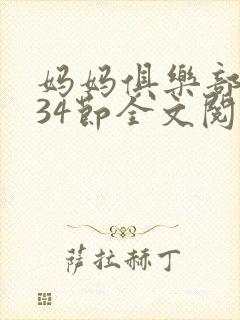 妈妈俱樂部
34節全文閱
薩拉赫丁